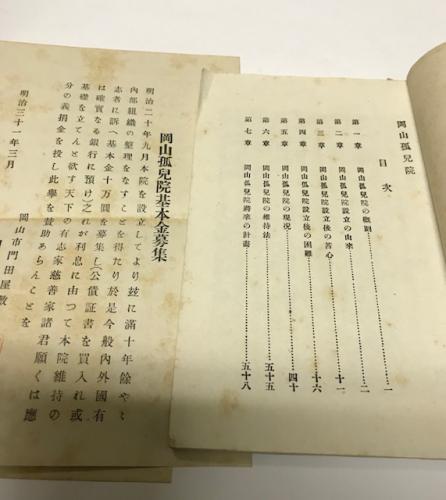 岡山孤兒院
目次
第一章 岡山孤兒院の觀測………一
第二章 岡山孤兒院設立の由來………二
第三章 岡山孤兒院設立後の苦心………十一
第四章 岡山孤兒院設立後の困難………十六
第五章 岡山孤兒院の現况………四十
第六章 岡山孤兒院の維持法………五十五
第七章 岡山孤兒院將來の計畫………五十八
岡山孤兒院基本金募集
明治二十年九月本院を設立してより玆に滿十年餘やゝ
內部組織の整理をなすことを得たり於是今般內外國有
志者に訴へ基本金十萬圓を募集し(公債証書を買入れ或
は確實なる銀行に預け)之れが利息に由つて本院維持の
基礎を立てんと欲す天下の有志家慈善家諸君願くは應
分の義捐金を投し此擧を賛助あらんことを
明治三十一年三月
岡山市門田屋敷